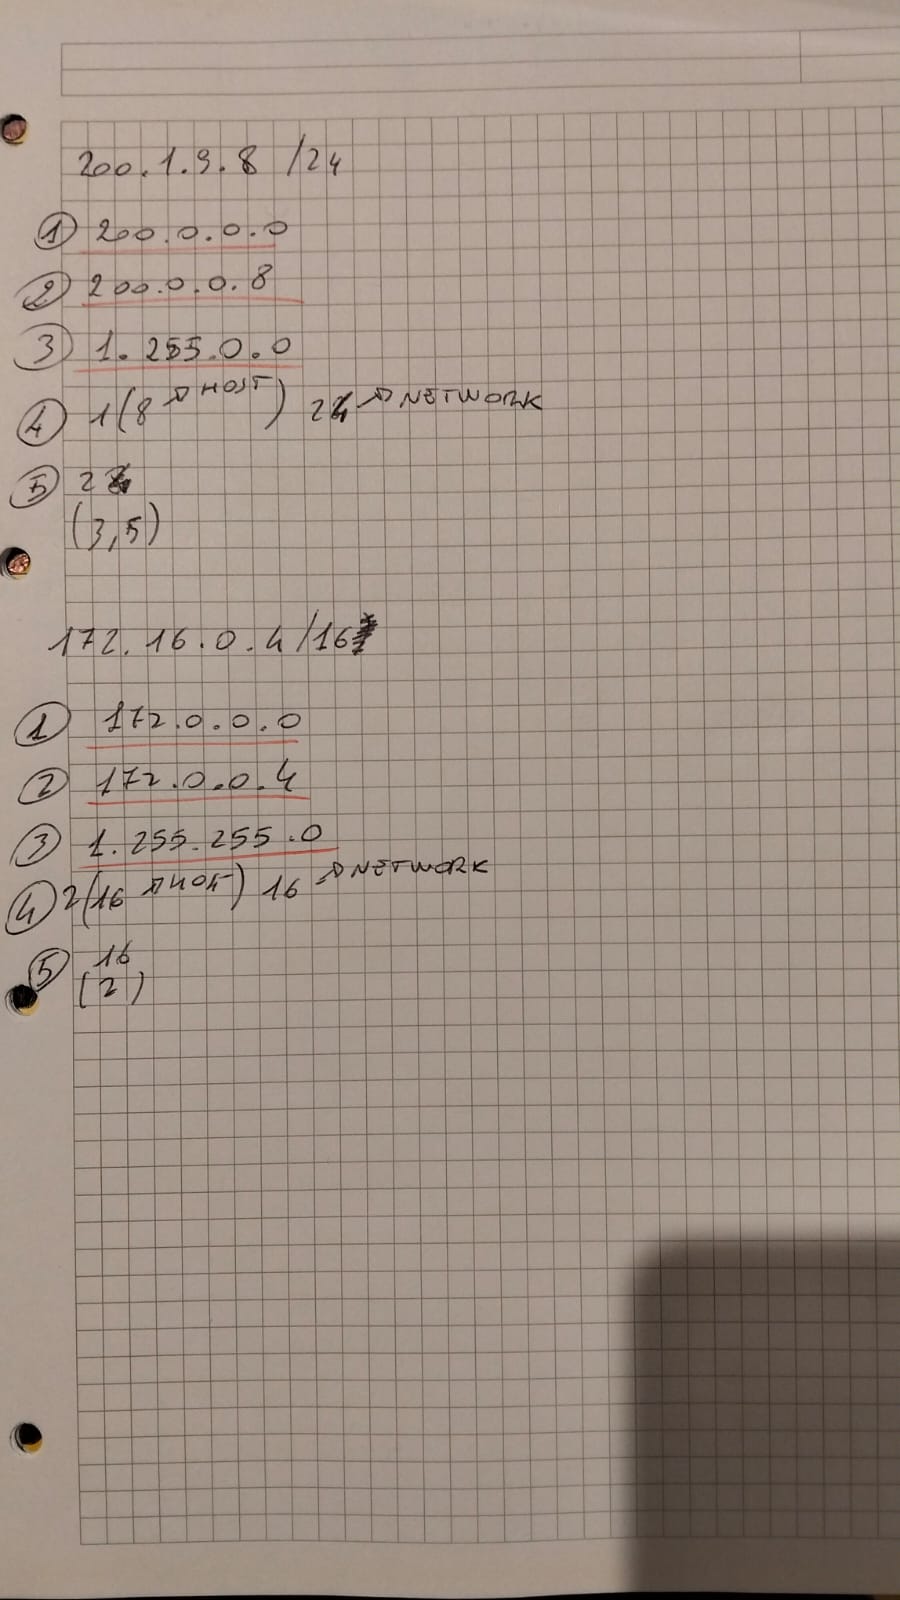 200.1.9.8 /24
① 200.0.0.0
② 200.0.0.8
③ 1.255.0.0
④ 1(8 → HOST) 24 → NETWORK
⑤ 2
(3,5)
172.16.0.4/16
① 172.0.0.0
② 172.0.0.4
③ 1.255.255.0
④ 2(16 → HOST) 16 → NETWORK
⑤ 16
(2)